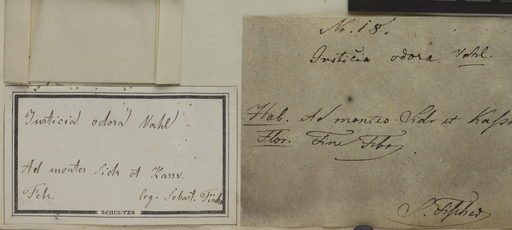 Justicia odora Vahl
Ad montes Sidr et Kassr.
Febr. leg. Schut. Fisch
SCHULTES
Nr. 18.
Justicia odora Vahl.
Hab. Ad montes Sidr et Kassr
Flor. Fine Febr.
S. Fischer